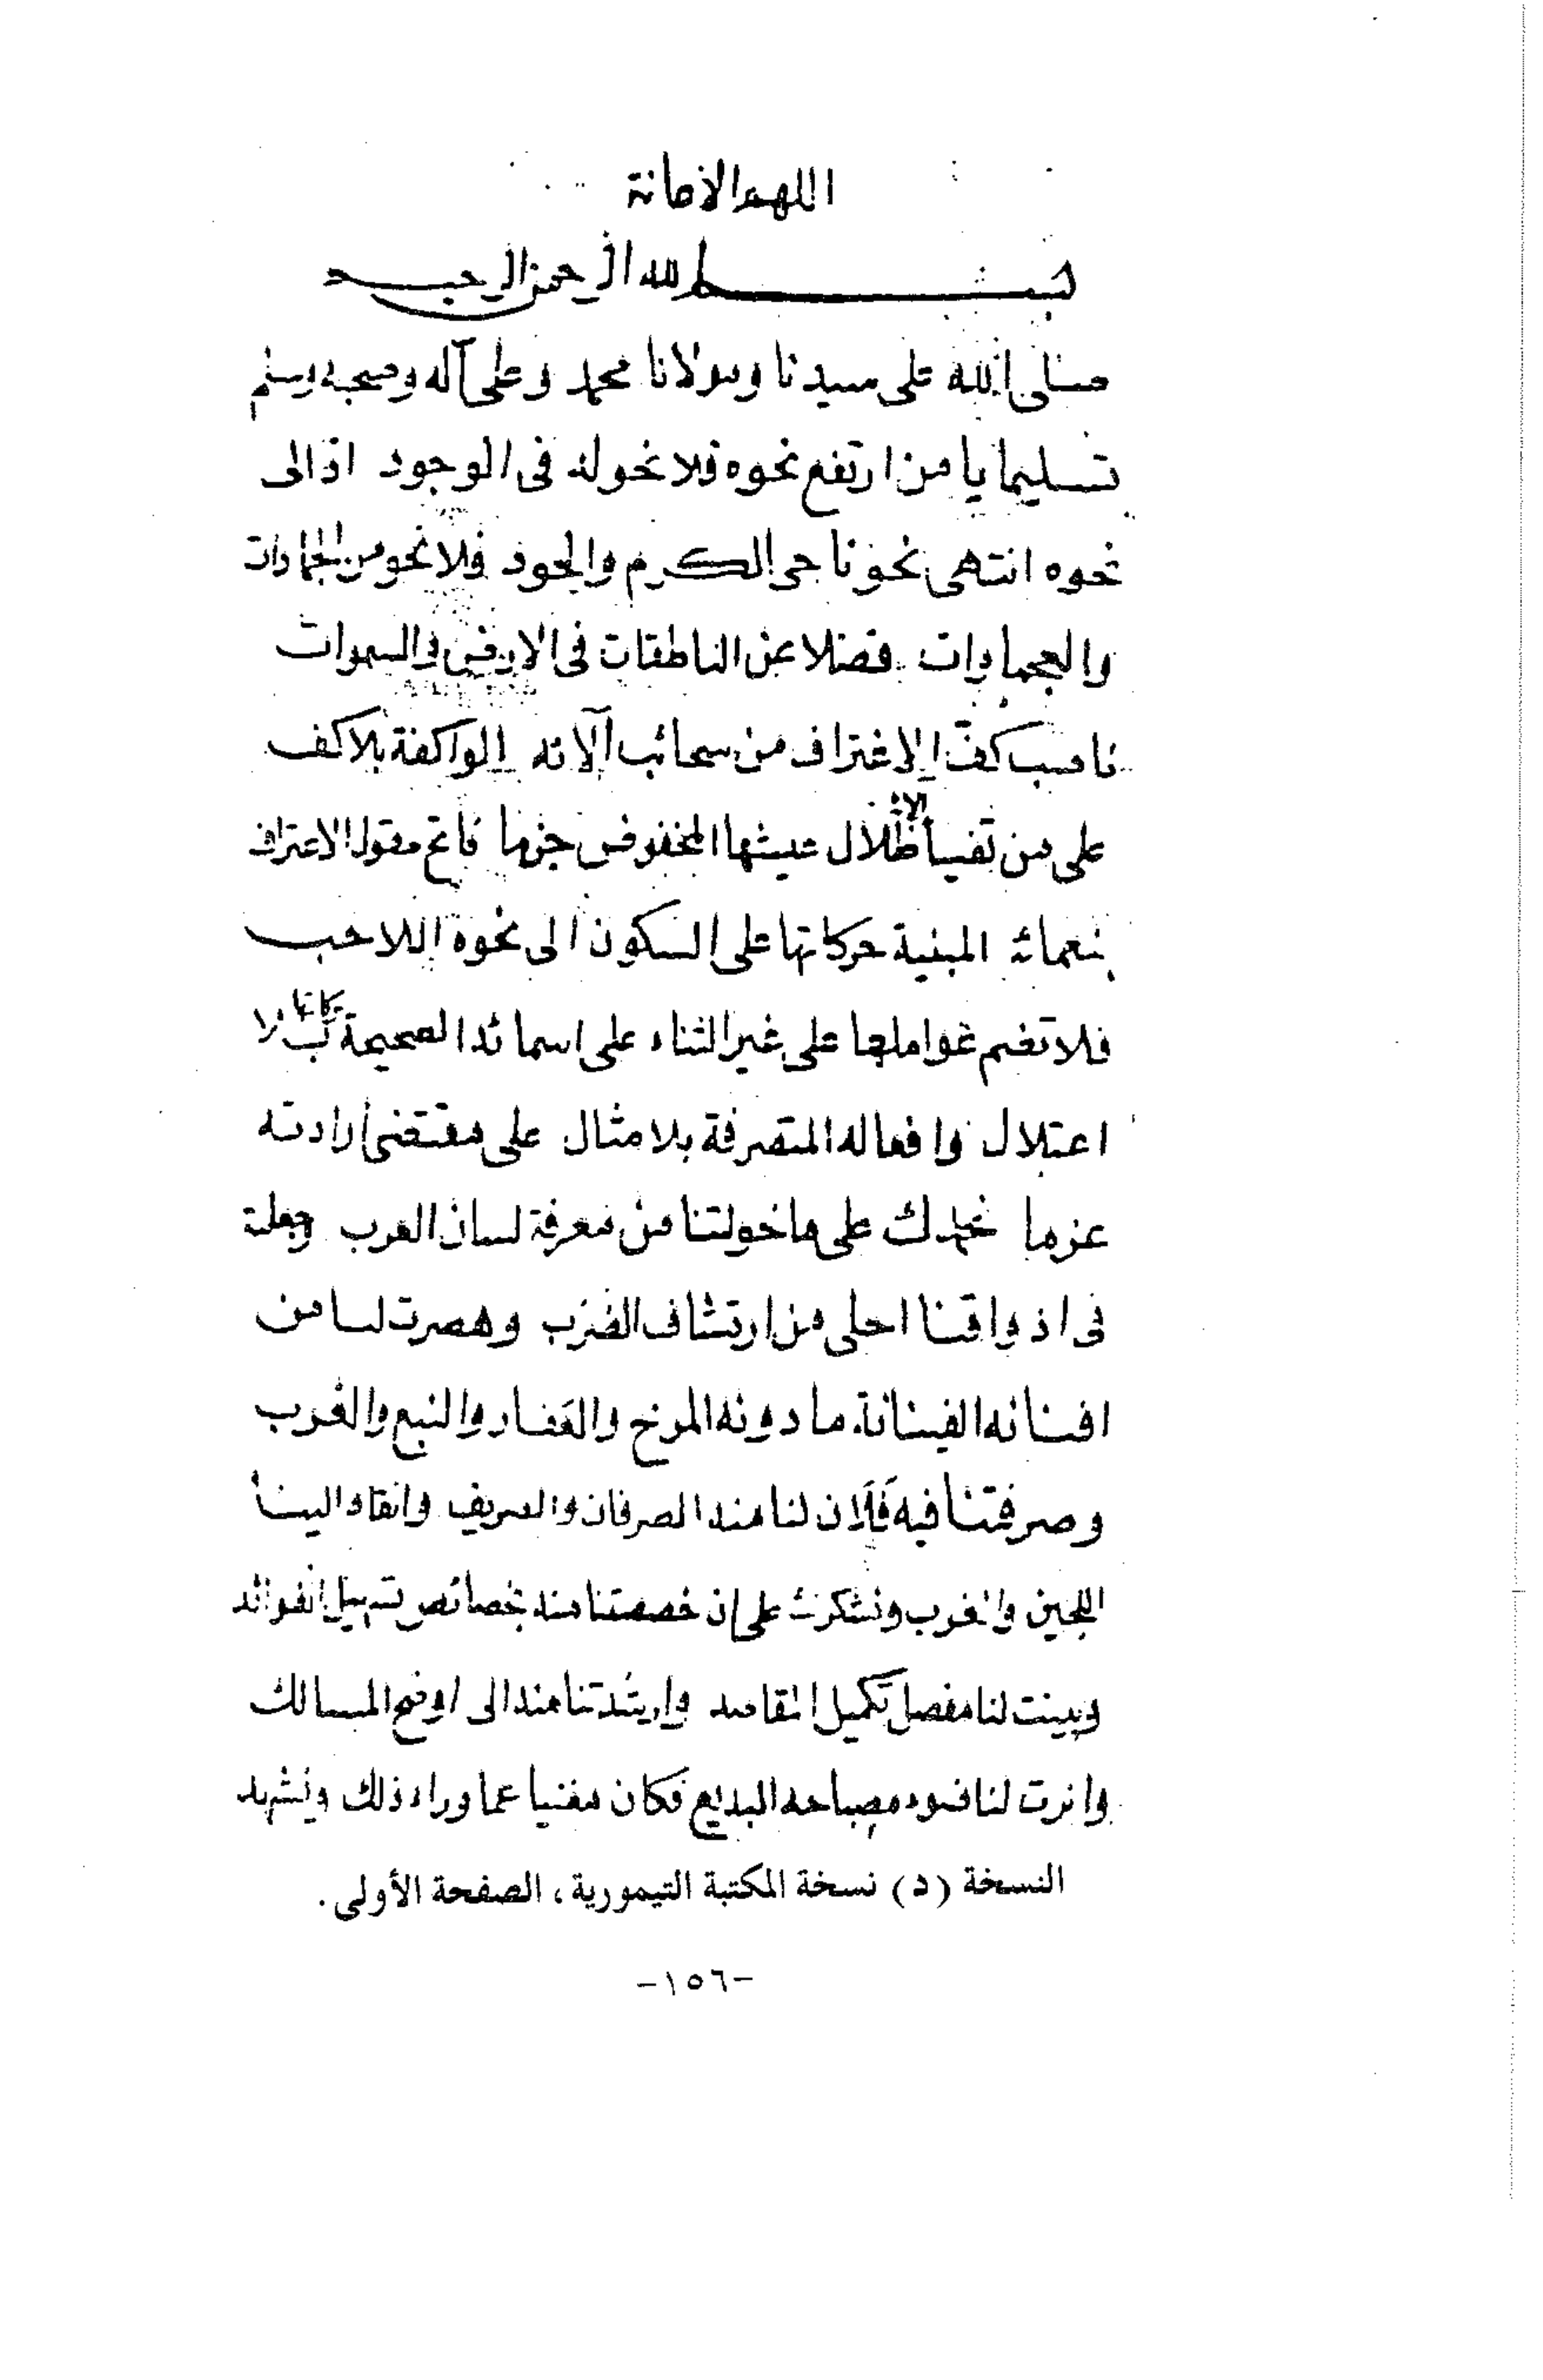 اللهم الاعانة
بسم الله الرحمن الرحيم
صلى الله على سيدنا ومولانا محمد وعلى آله وصحبه وسلم
تسليما يا من ارتفع نحوه فلا نحو له فى الوجود اذ الى
نحوه انتهى نحونا حى الكرم والجود فلا نحو من الجمادات
والعجماوات فضلا عن الناطقات فى الارض والسموات
ناصب كفّ الاغتراف من سحائب آلائه الواكفة بلا كف
على من تفيأ ظلال عيشها المخفوض جزما فاتح مقول الاعتراف
بنعمائه المبنية حركاتها على السكون الى نحوه اللاحب
فلا تضم عواملها على غير الثناء على اسمائه الصحيحة بلا
اعتلال وافعاله المتصرفة بلا مثال على مقتضى ارادته
عزما نحمدك على ما خولتنا من معرفة لسان العرب وجعلته
فى اذواقنا احلى من ارتشاف الضرب وهصرت لنا من
افنانه الفينانة ما دونه المرخ والعفار والنبع والغرب
وصرفتنا فيه فَلَان لنا منه الصرفان والصريف وانقاد الينا
اللجين والغرب ونشكرك على ان خصصتنا منه بخصائص تسهيل الفوائد
وبينت لنا مفصل تكميل المقاصد وارشدتنا منه الى اوضح المسالك
وانرت لنا ضوء مصباحه البديع فكان مغنيا عما وراء ذلك ونشهد
النسخة (د) نسخة المكتبة التيمورية، الصفحة الأولى.
-١٥٦-